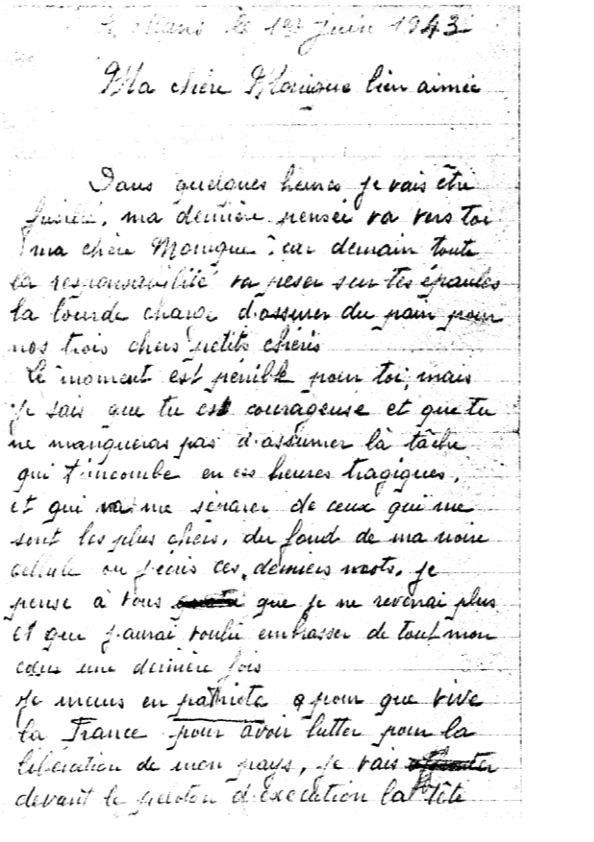 Le Mans le 1er juin 1943
Ma chère Monique bien aimée
Dans quelques heures je vais être
fusillé, ma dernière pensée va vers toi
ma chère Monique, car demain toute
la responsabilité va peser sur tes épaules
la lourde charge d'assurer du pain pour
nos trois chers petits chéris
Le moment est pénible pour toi, mais
je sais que tu est courageuse et que tu
ne manqueras pas d'assumer la tâche
qui t'incombe en ces heures tragiques,
et qui va me séparer de ceux qui me
sont les plus chers, du fond de ma noire
cellule ou j'écris ces derniers mots, je
pense à vous que je ne reverrai plus
et que j'aurai voulu embrasser de tout mon
cœur une dernière fois
Je meurs en patriote pour que vive
la France pour avoir lutter pour la
libération de mon pays, je vais
devant le peloton d'exécution la tête